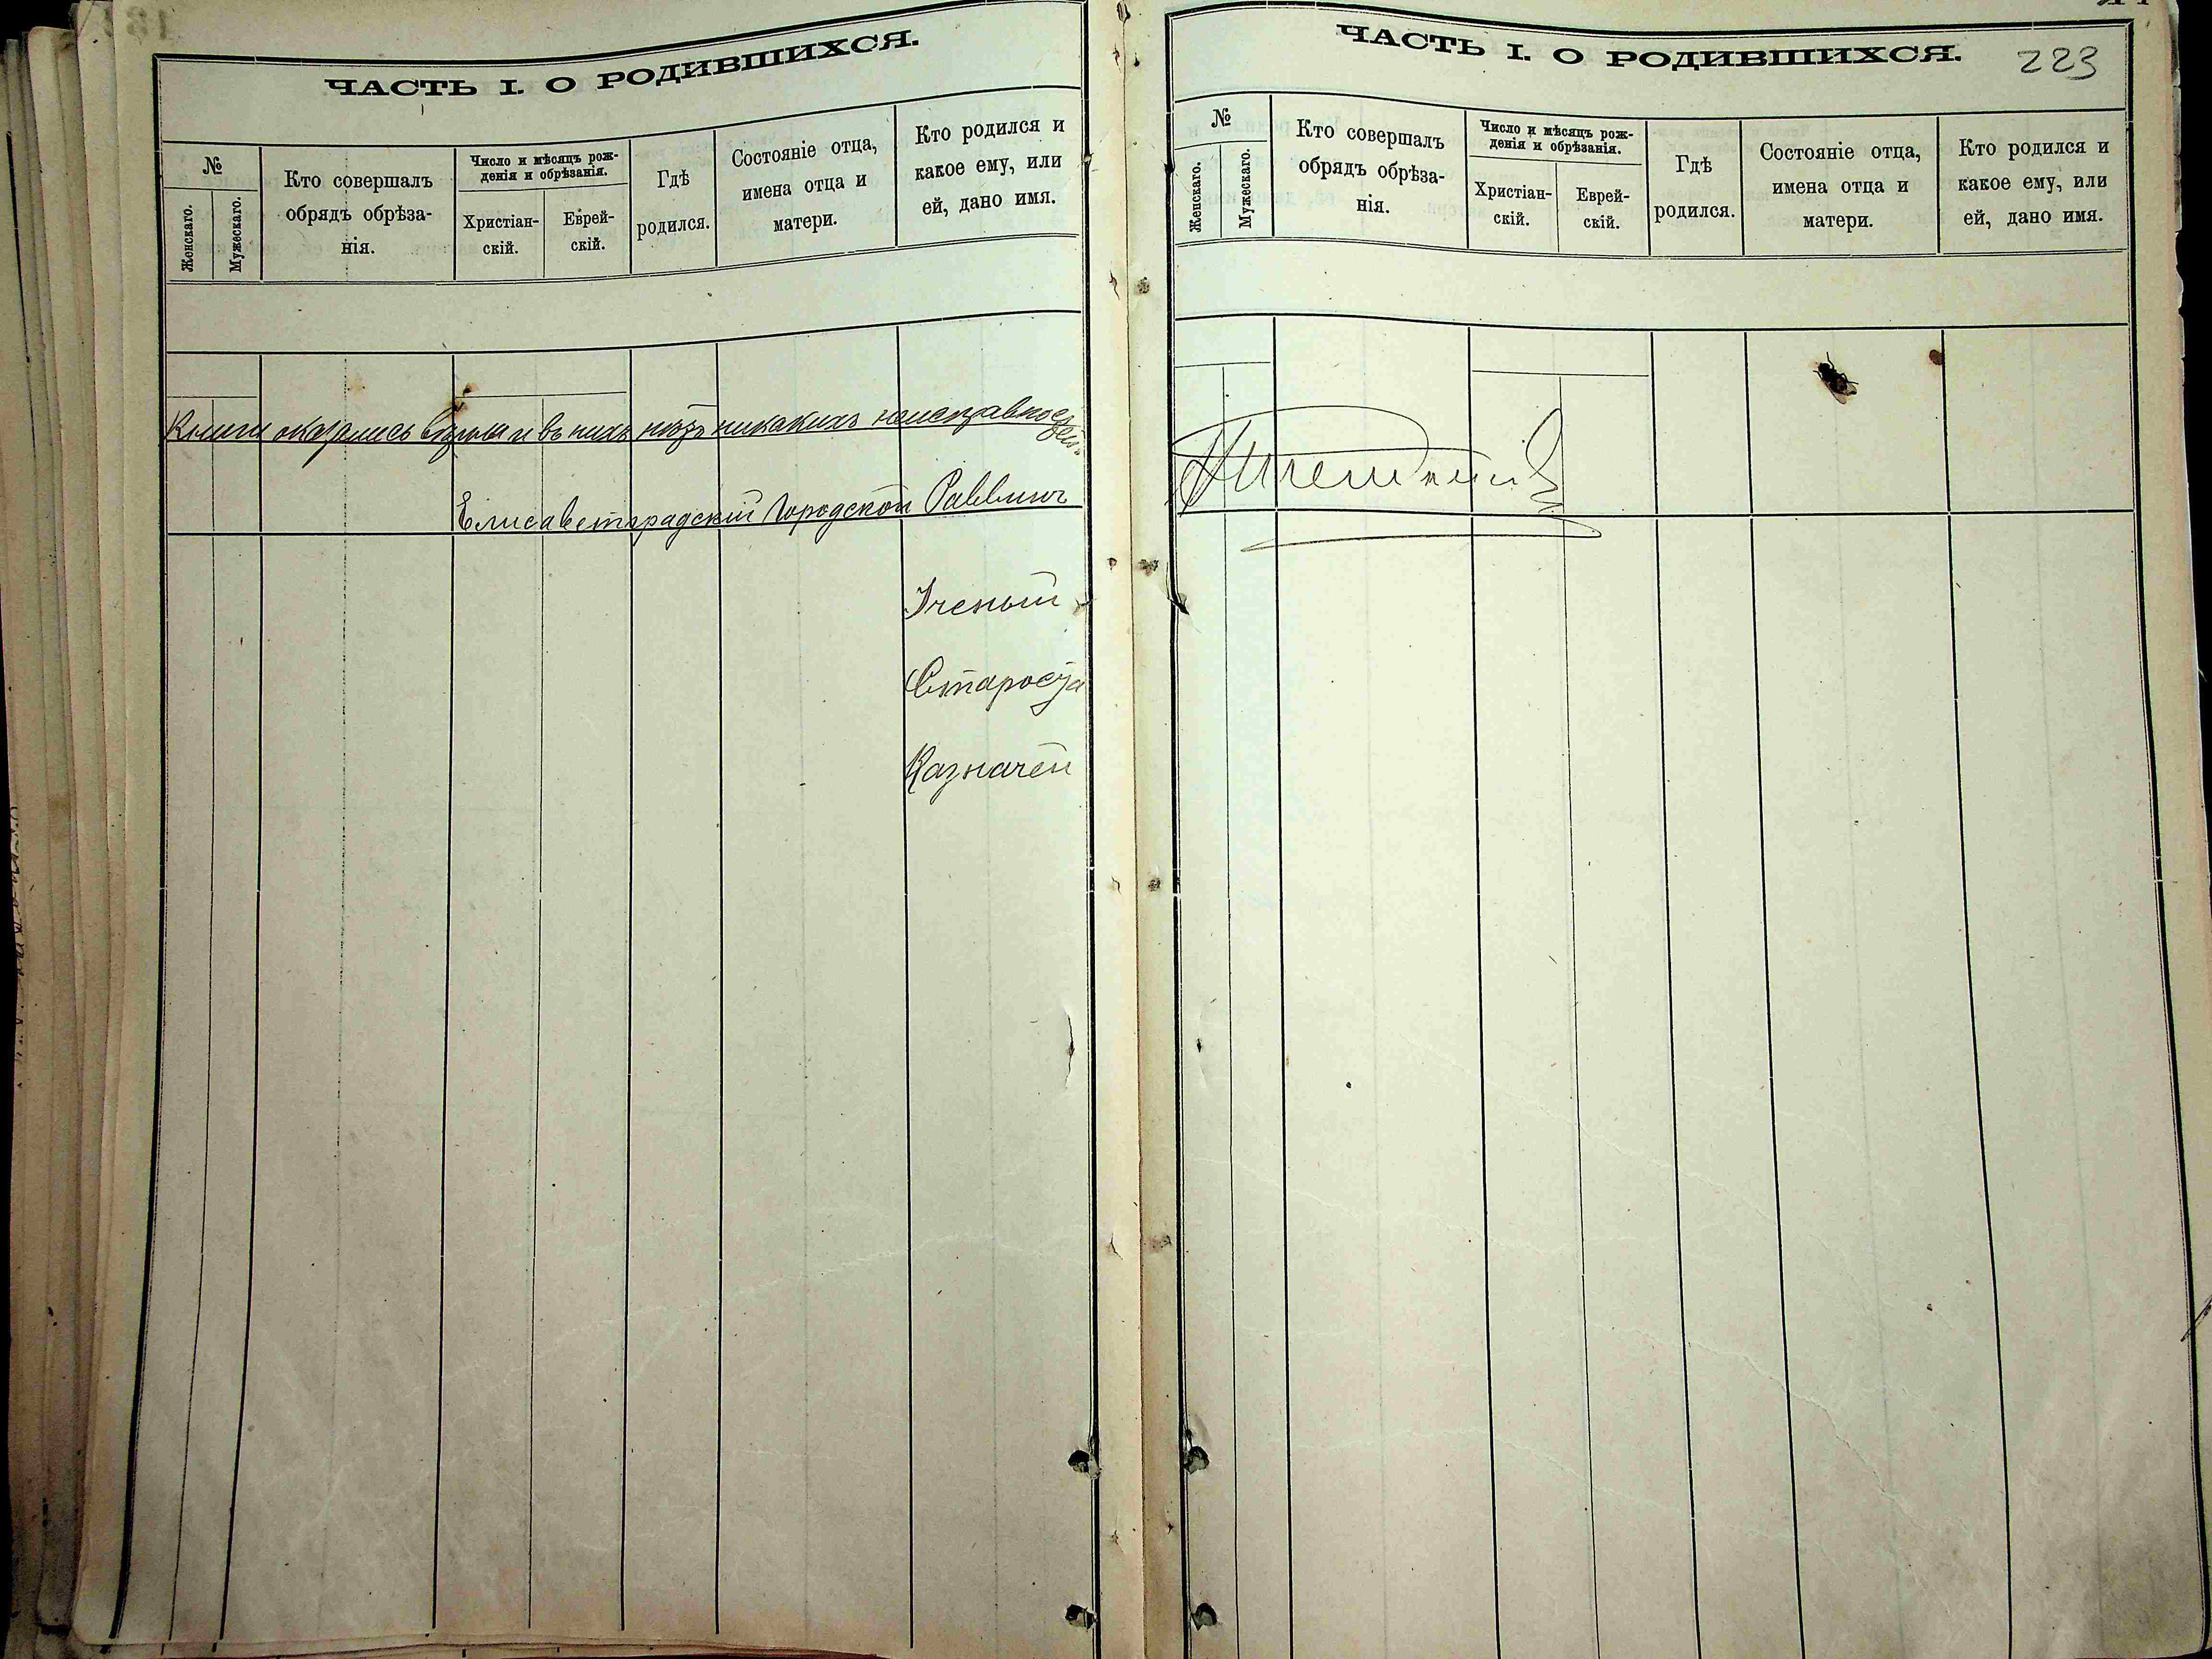 ЧАСТЬ I. О РОДИВШИХСЯ.
№
Женскаго.
Мужескаго.
Кто совершалъ
обрядъ обрѣза-
нія.
Число и мѣсяцъ рож-
денія и обрѣзанія.
Христіан-
скій.
Еврей-
скій.
Гдѣ
родился.
Состояніе отца,
имена отца и
матери.
Кто родился и
какое ему, или
ей, дано имя.
Книги оказались вѣрны и въ нихъ нѣтъ никакихъ неисправностей
Елисаветградскій Городской Раввинъ
Ученый
Староста
Казначей
ЧАСТЬ I. О РОДИВШИХСЯ.
223
№
Женскаго.
Мужескаго.
Кто совершалъ
обрядъ обрѣза-
нія.
Число и мѣсяцъ рож-
денія и обрѣзанія.
Христіан-
скій.
Еврей-
скій.
Гдѣ
родился.
Состояніе отца,
имена отца и
матери.
Кто родился и
какое ему, или
ей, дано имя.